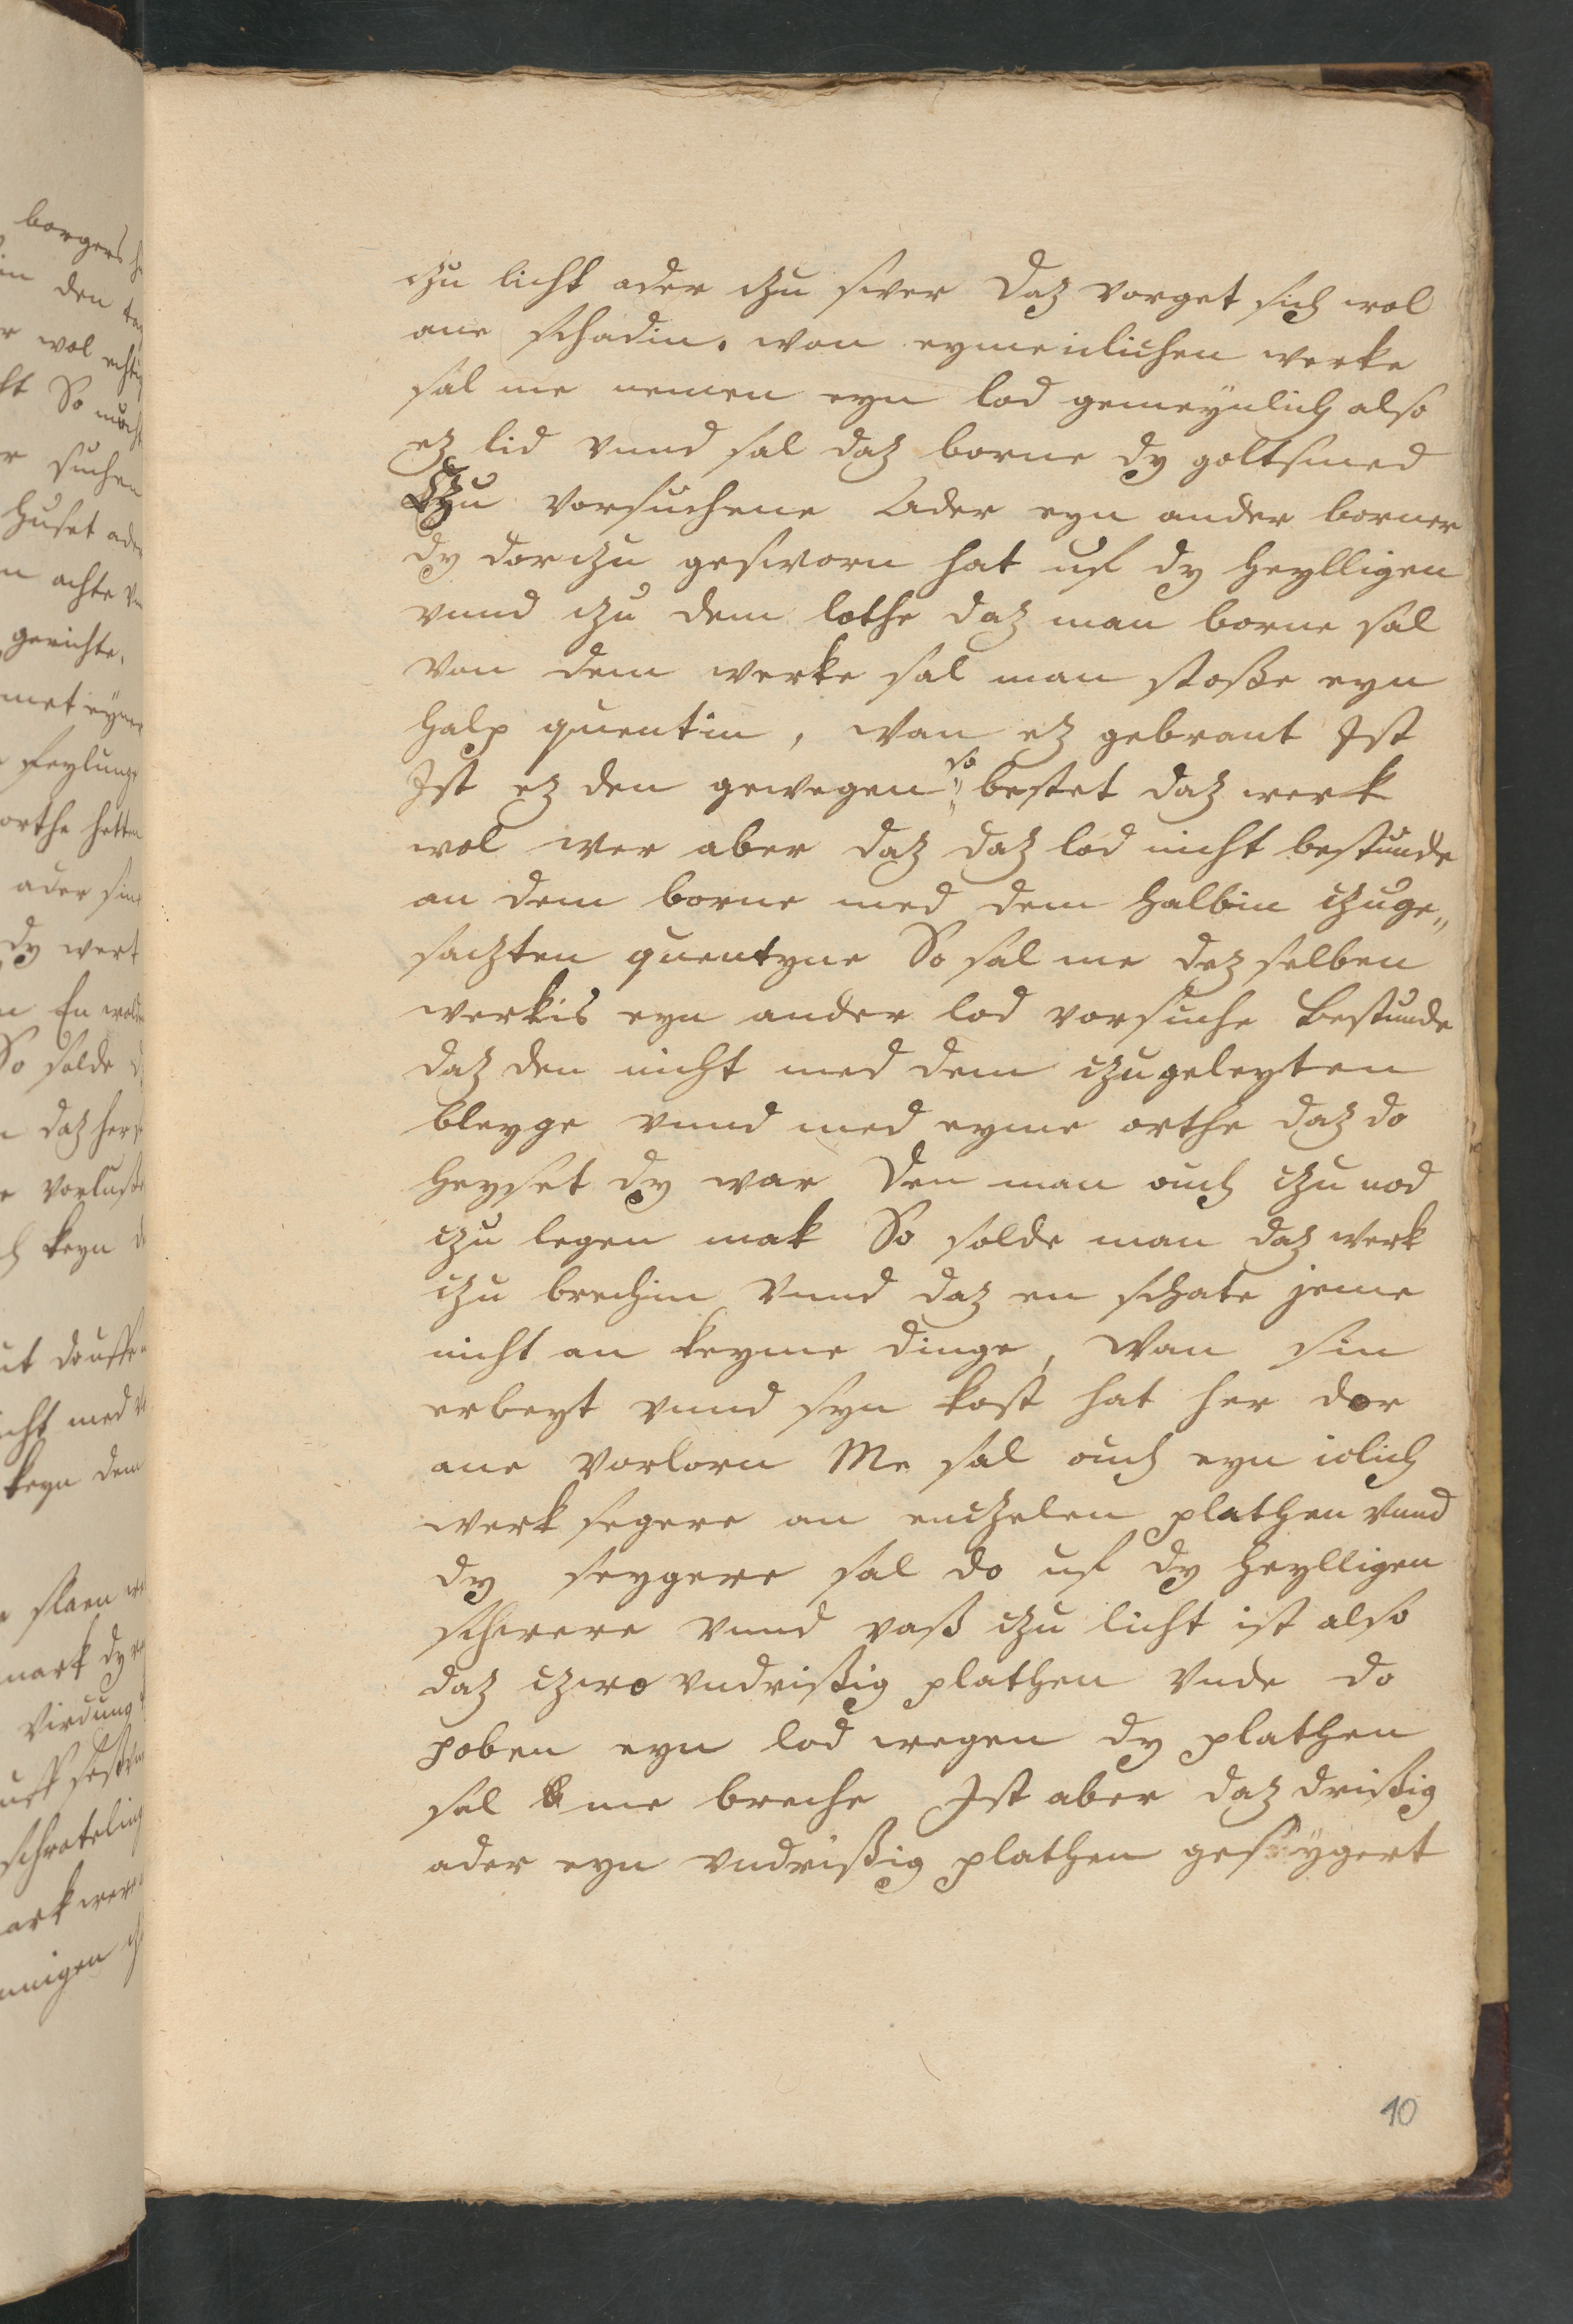 czu licht ader czu swer Daz vorget sich wol
ane schadin. von eyme iclichen werke
sal me nemen eyn lod gemeÿnlich also
ez lid vnnd sal daz borne dy goltsmed
Czu vorsuchene Ader eyn ander borner
dy dorczu gesworn hat uf dy heylligen
vnnd czu dem lothe daz man borne sal
von dem werke sal man stoße eyn
halp quentin, wan ez gebrant Ist
Ist ez den gewegen so bestet daz werk
wol wer aber daz daz lod nicht bestunde
an dem borne med dem halbin czuge„
saczten quentyne So sal me dez selben
werkis eyn ander lod vorsuche Bestunde
daz den nicht med dem czugeleyten
bleyge vnnd med eyme orthe daz do
heyset dy war Den man ouch czu nod
czu legen mak So solde man daz werk
czu brechin vnnd daz en schate jeme
nicht an keyme dinge, wan sin
erbeyt vnnd syn kost hat her dor
ane vorlorn Me sal ouch eyn iclich
werk segere an enczelen plathen vnnd
dy seygere sal do uf dy heylligen
schwere vnnd waß czu licht ist also
daz czwo vndrißig plathen vnde do
poben eyn lod wegen dy plathen
sal me breche Ist aber daz drißig
ader eyn vndrißig plathen geseÿgert
10